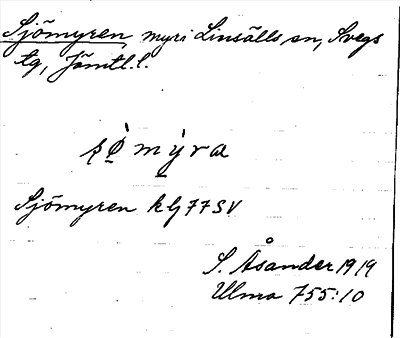 Sjömyren myr i Linsälls sn, Svegs
tg, Jämtl. l.
sø̀mýra
Sjömyren klj 77 SV
S. Åsander 1919
Ulma 755:10